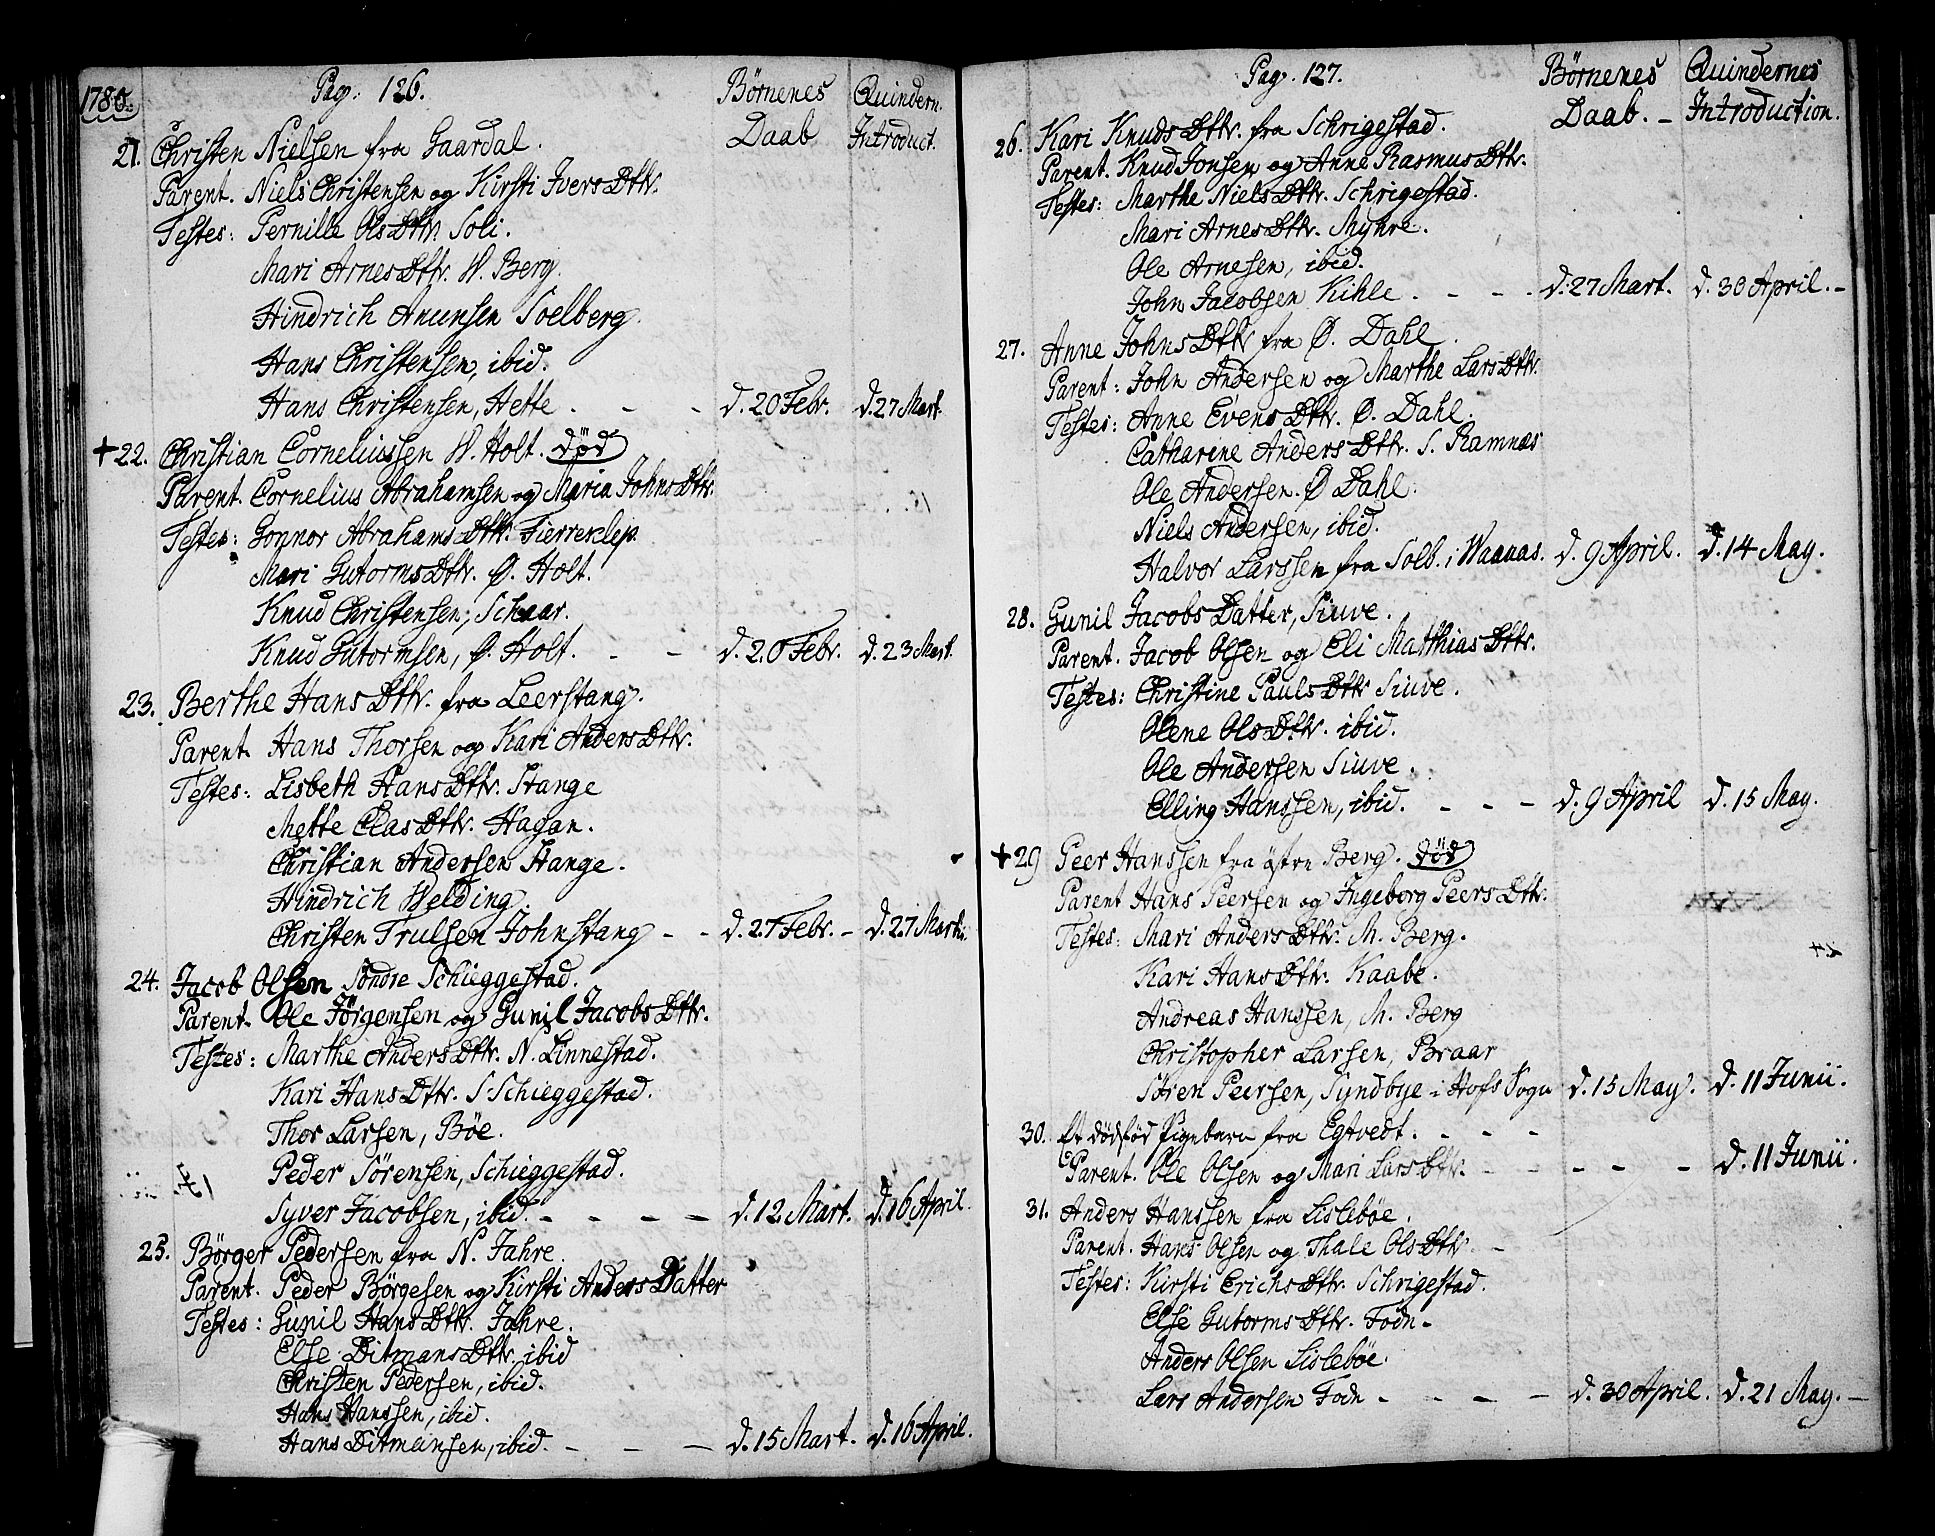 1780.
Pag. 126.
Börnenes Daab
Quindern. Introduct.
21. Christen Nielsen fra Gaardal.
Parent. Niels Christensen og Kirsti Ivers Dttr.
Testes: Pernille Ols Dttr Soli.
Mari Arnes Dttr. W. Berg.
Hindrich Amunsen Soelberg.
Hans Christensen, ibid.
Hans Christensen, Hette . - - d. 20 Febr. d. 27 Mart.
+ 22. Christian Corneliussen W. Holt. död
Parent. Cornelius Abrahamsen og Maria Johns Dttr.
Testes: Gonnor Abrahams Dttr. Fierreklep.
Mari Gutorms Dttr. Ø. Holt.
Knud Christensen, Schaar.
Knud Gutormsen, Ø. Holt. - - d. 20 Febr. d. 23 Mart.
23. Berthe Hans Dttr. fra Leerstang.
Parent. Hans Thorsen og Kari Anders Dttr.
Testes: Lisbeth Hans Dttr. Stange
Mette Clas Dttr. Hagan.
Christian Andersen Stange.
Hindrich Welding.
Christen Trulsen Johnstang - - d. 27 Febr. - d. 27 Martii
24. Jacob Olsen Söndre Schieggestad.
Parent. Ole Jörgensen og Gunil Jacobs Dttr.
Testes: Marthe Anders Dttr. N. Linnestad.
Kari Hans Dttr. S Schieggestad.
Thor Larsen, Böe.
Peder Sörensen, Schieggestad.
Syver Jacobsen, ibid. - - - - d. 12. Mart. d. 16 April.
25. Börger Pedersen fra N. Jahre.
Parent. Peder Börgesen og Kirsti Anders Datter
Testes: Gunil Hans Dttr. Jahre.
Else Ditmans Dttr. ibid
Christen Pedersen, ibid.
Hans Hanssen, ibid.
Hans Ditmansen, ibid. - - - d. 15 Mart. d. 16 April.
Pag. 127.
Börnenes Daab. -
Quindernes Introduction.
26. Kari Knuds Dttr. fra Schrigestad.
Parent. Knud Jonsen og Anne Rasmus Dttr.
Testes: Marthe Niels Dttr. Schrigestad.
Mari Arnes Dttr. Myhre.
Ole Arnesen, ibid.
John Jacobsen Kihle . - - - d. 27 Mart. d. 30 April. -
27. Anne Johns Dttr fra Ø. Dahl.
Parent: John Andersen og Marthe Lars Dttr.
Testes: Anne Evens Dttr. Ø. Dahl.
Catharine Anders Dttr. S. Ramnæs
Ole Andersen. Ø Dahl.
Niels Andersen, ibid.
Halvor Larssen fra Solb. i Waanas. d. 9 April. d. 14 May.
28. Gunil Jacobs Datter, Siuve.
Parent. Jacob Olsen og Eli Matthias Dttr.
Testes: Christine Pauls Dttr Siuve.
Olene Ols Dttr. ibid.
Ole Andersen Siuve.
Elling Hanssen, ibid. - - - d. 9 April d. 15 May.
+ 29 Peer Hanssen fra östre Berg. död
Parent Hans Peersen og Ingeborg Peers Dttr.
Testes: Mari Anders Dttr. M. Berg.
Kari Hans Dttr. Kaabe.
Andreas Hanssen, M. Berg
Christopher Larsen, Braar
Sören Peersen, Sundbye i Hofs Sogn d. 15 May. d. 11 Junii.
30. Et dödföd Pigebarn fra Egtvedt. - - -
Parent. Ole Olsen og Mari Lars Dttr. - - - - - d. 11 Junii.
31. Anders Hanssen fra Lislebøe.
Parent. Hans Olsen og Thale Ols Dttr. -
Testes: Kirsti Erichs Dttr. Schrigestad.
Else Gutorms Dttr. Fodn -
Anders Olsen Lislebøe.
Lars Andersen Fodn - - - - d. 30 April. d. 21 May. -